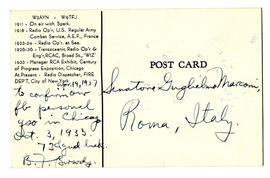 W2AYN - W9TFJ
1911 - On air with Spark.
1918 - Radio Op'r, U.S. Regular Army
Combat Service, A.E.F., France
1923-24 - Radio Op'r. at Sea.
1925-30 - Transoceanic Radio Op'r &
Eng'r, RCAC, Broad St., "WIZ"
1933 - Manager RCA Exhibit, Century
of Progress Exposition, Chicago
At Present - Radio Dispatcher, FIRE
DEPT, City of New York.
Apr. 19, 1937
to confirm our
fb personal
qso in Chicago
Oct. 3, 1933.
73 & good luck.
POST CARD
Senatore Guglielmo Marconi,
Roma, Italy.